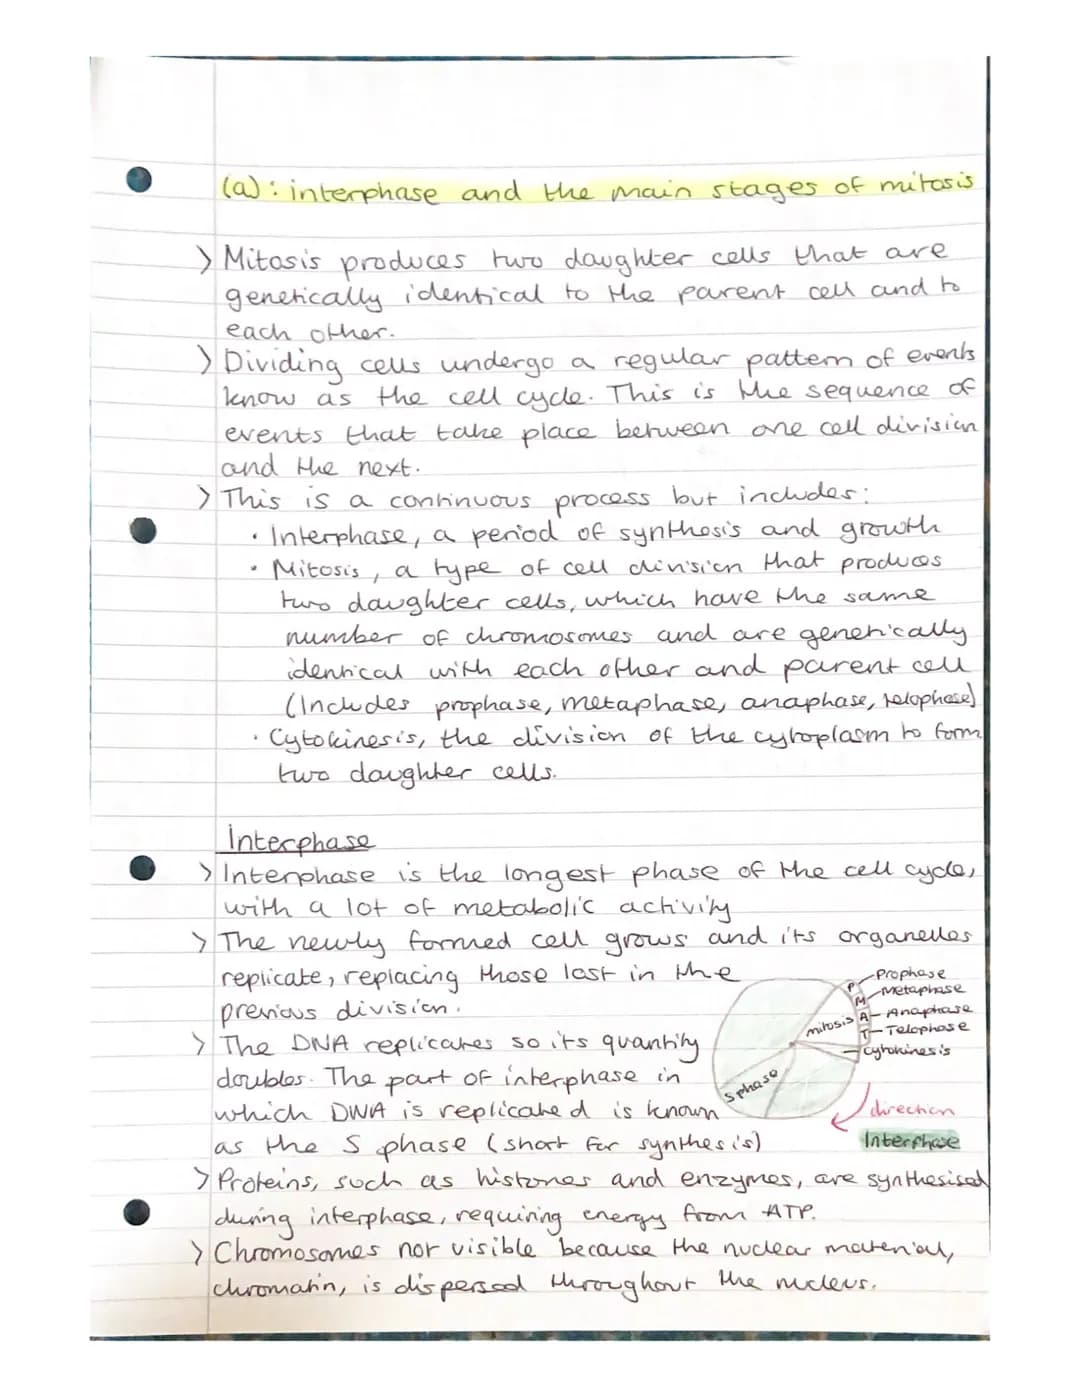 (a): interphase and the main stages of mitosis
> Mitosis produces two daughter cells that are
genetically identical to the parent cell and to
each other.
> Dividing cells undergo a regular pattern of events
know as the cell cycle. This is the sequence of
events that take place between one cell division
and the next.
> This is a continuous process but includes:
• Interphase, a period of synthesis and growth
• Mitosis, a type of cell division that produces
two daughter cells, which have the same
number of chromosomes and are genetically
identical with each other and parent cell
(Includes prophase, metaphase, anaphase, telophase)
• Cytokinesis, the division of the cytoplasm to form
two daughter cells.
Interphase
> Interphase is the longest phase of the cell cycle,
with a lot of metabolic activity
> The newly formed cell grows and its organelles
replicate, replacing those lost in the
previous division.
> The DNA replicates so its quantity
doubles. The part of interphase in
which DNA is replicated is known
as the S phase (short for synthesis)
P
M
A
T
Prophase
Metaphase
Anaphase
Telophase
mitosis
cytokinesis
S phase
direction
Interphase
> Proteins, such as histones and enzymes, are synthesised
during interphase, requiring energy from ATP.
> Chromosomes not visible because the nuclear material,
chromatin, is dispersed throughout the nucleus.